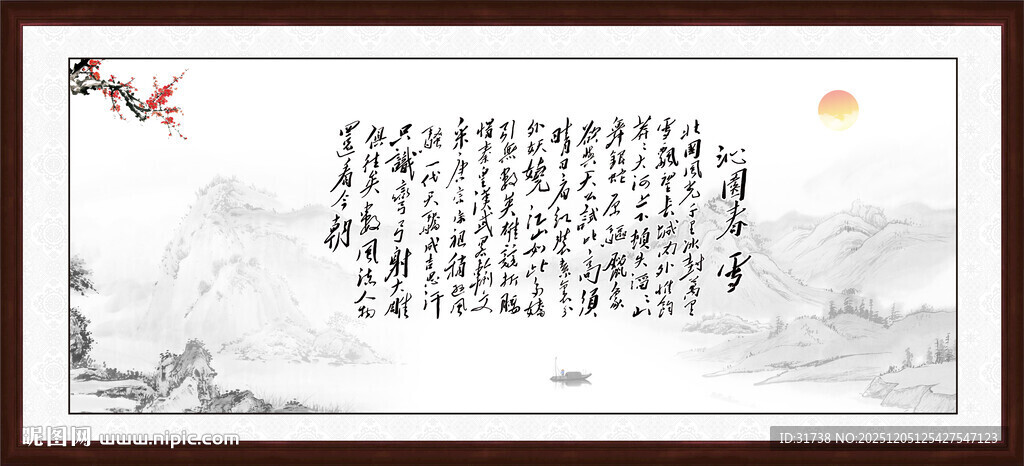 沁園春 雪
北國风光千里冰封萬里
雪飄望长城内外惟餘
莽〻大河上下頓失滔〻山
舞銀蛇原驅臘象
欲與天公試比高須
晴日看红裝素裹分
外妖嬈江山如此多嬌
引無數英雄競折腰
惜秦皇漢武略輸文
采唐宗宋祖稍遜風
騷一代天驕成吉思汗
只識彎弓射大雕
俱往矣數風流人物
還看今朝
昵图网 www.nipic.com
ID:31738 NO:20251205125427547123